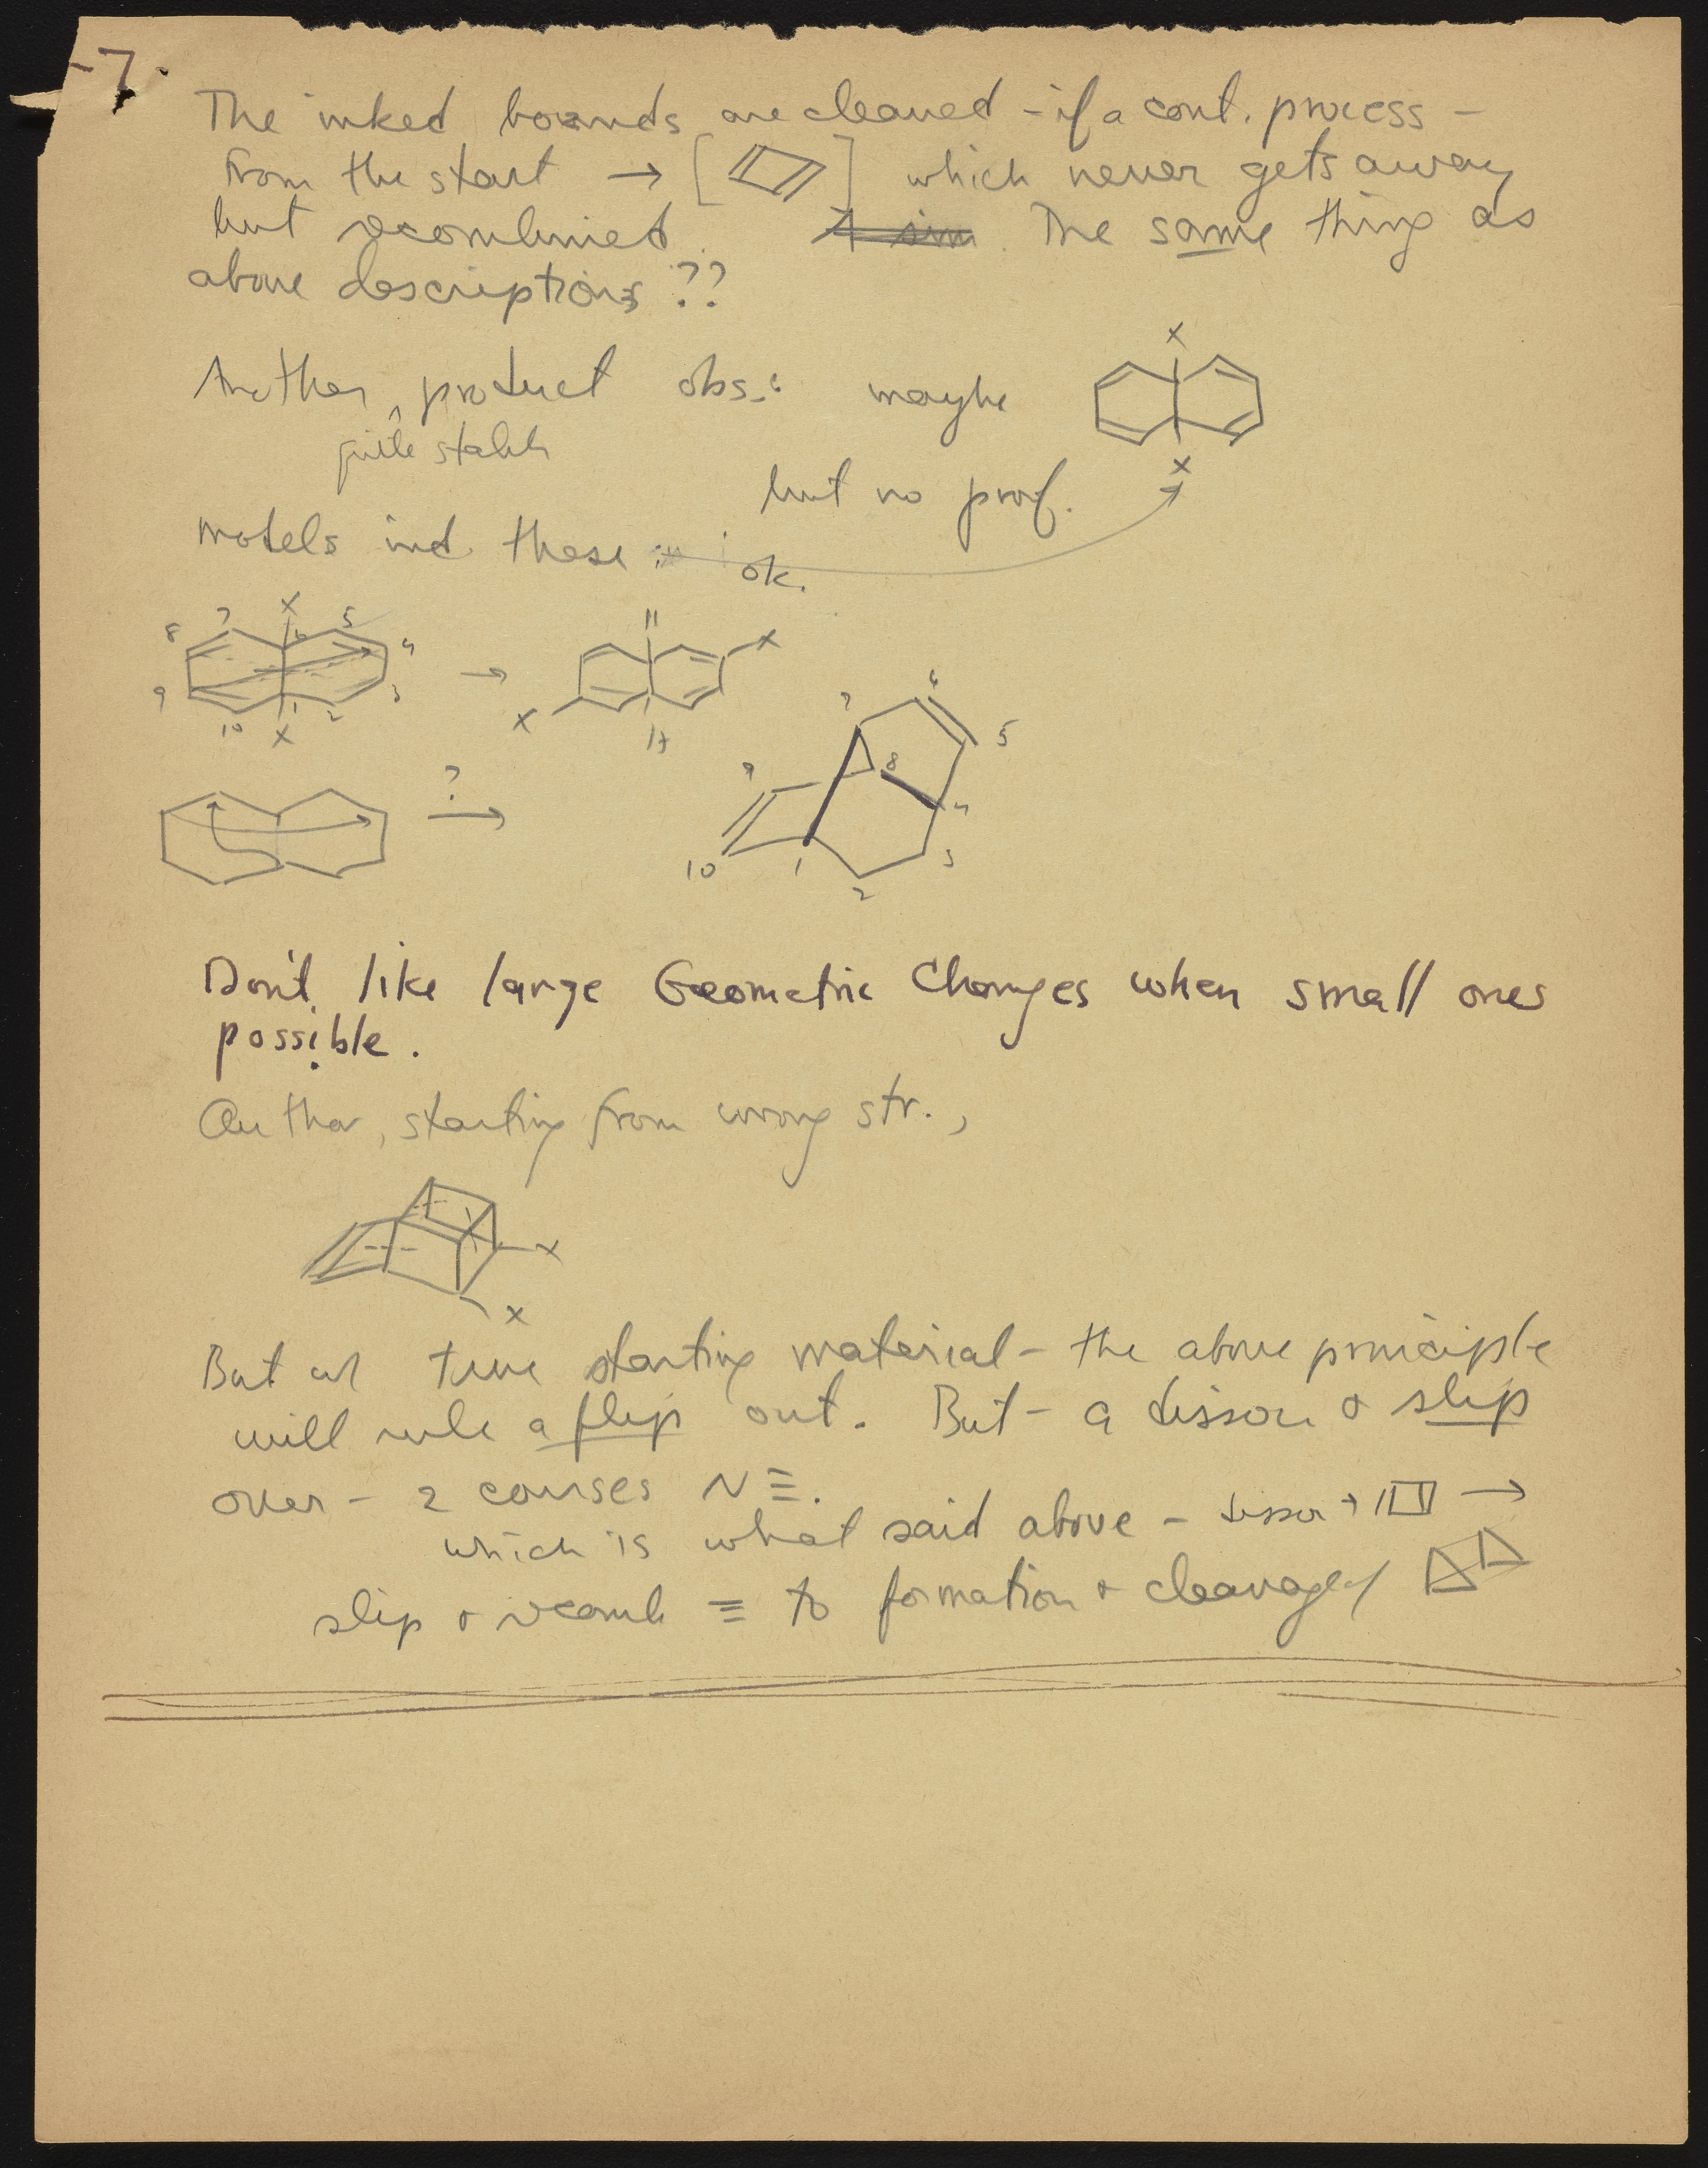 -7.
The inked bounds are cleaved - if a cont. process -
from the start → [ ] which never gets away
but recombined. The same thing as
above descriptions ??
Another product obs.: maybe
quite stable
X
X
but no proof.
models ind. these ok.
X
8 7 6 5 4
9 10 1 2 3
X
→
11
X
X
?
→
7 6 5
9 8 4
10 1 2 3
Don't like large Geometric Changes when small ones
possible.
Author, starting from wrong str.,
X
X
But w/ true starting material - the above principle
will rule a flip out. But - a dissoc & slip
over - 2 courses N ≡.
which is what said above - dissoc → →
slip & recomb ≡ to formation & cleavage of